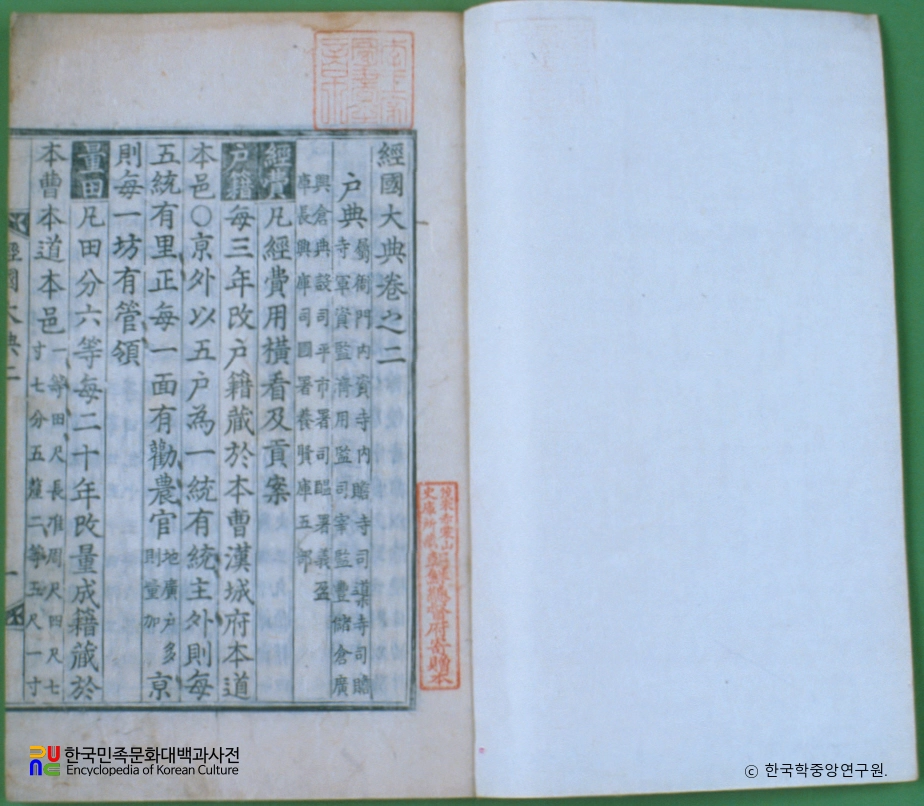 經國大典卷之二
户典 屬衙門內資寺內贍寺司䆃寺司贍
寺軍資監濟用監司宰監豊儲倉廣
興倉典設司平市署司醞署義盈
庫長興庫司圃署養賢庫五部
經費 凡經費用橫看及貢案
户籍 每三年改户籍藏於本曹漢城府本道
本邑○亰外以五户為一統有統主外則每
五統有里正每一面有勸農官 地廣户多 則量加 亰
則每一坊有管領
量田 凡田分六等每二十年改量成籍藏於
本曹本道本邑 一等田尺長准周尺四尺七
寸七分五釐二等五尺一寸
經國大典二
李王家圖書之章
茂朱赤裳山史庫所藏朝鮮總督府寄贈本
한국민족문화대백과사전
Encyclopedia of Korean Culture
ⓒ 한국학중앙연구원.